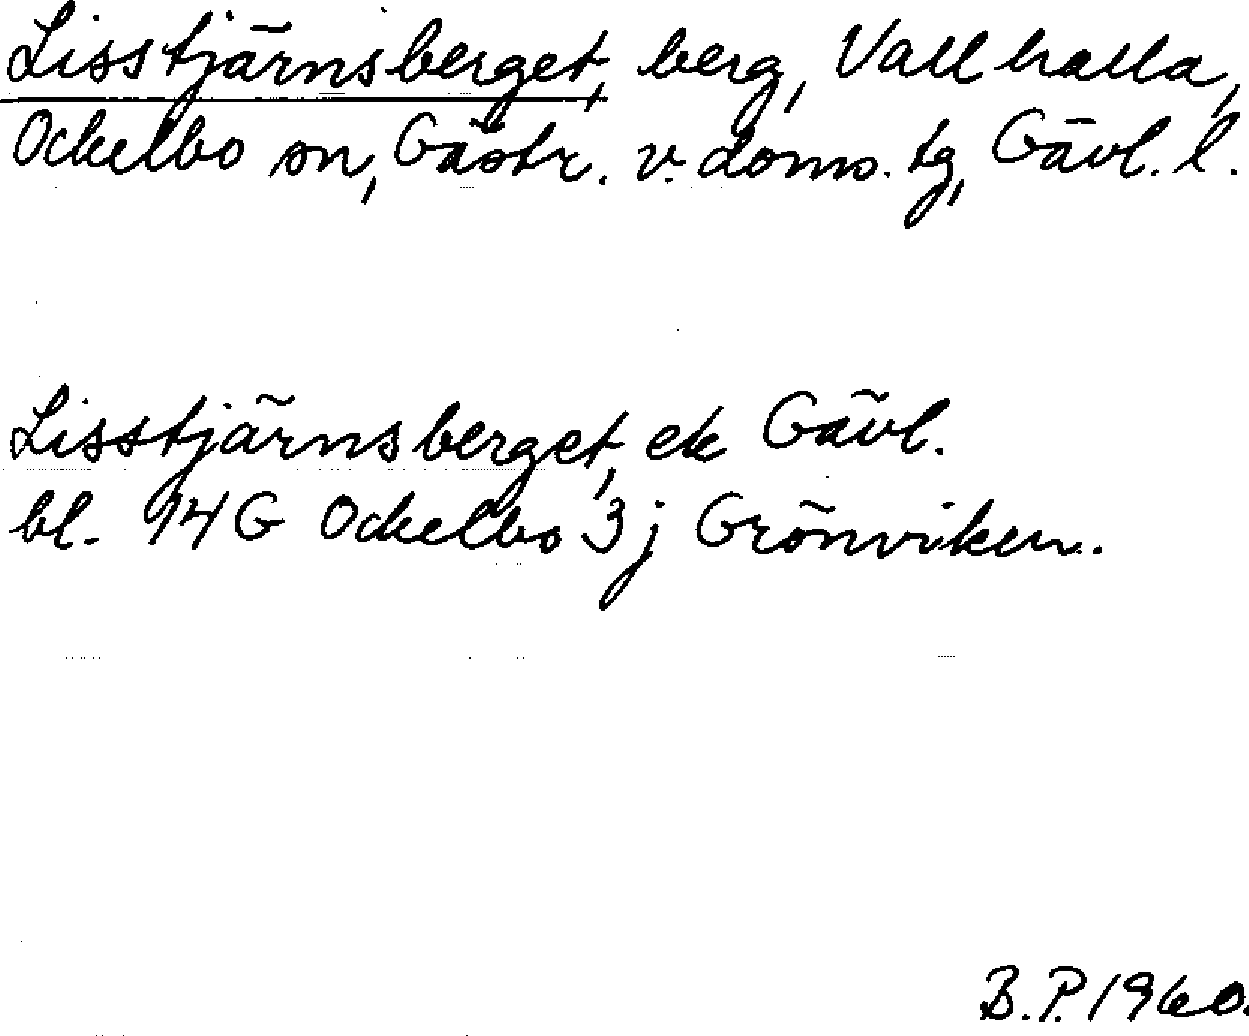 Lisstjärnsberget, berg, Vallhalla,
Ockelbo sn, Gästr. v. doms. tg, Gävl. l.
Lisstjärnsberget, ek Gävl.
bl. 14 G Ockelbo 3 j Grönviken.
B.P. 1960.